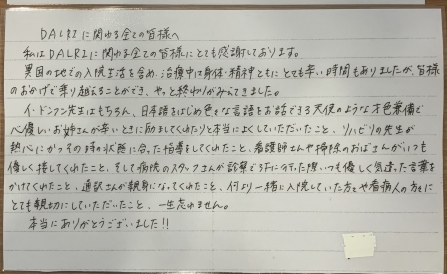 DALRIに関わる全ての皆様へ
私はDALRIに関わる全ての皆様にとても感謝しております。
異国の地での入院生活を含め、治療中は身体・精神ともにとても辛い時間もありましたが、皆様
のおかげで乗り越えることができ、やっと終わりがみえてきました。
イ・ドンフン先生はもちろん、日本語をはじめ色々な言語をお話できる天使のような才色兼備で
心優しいお姉さんが辛いときに励ましてくれたりと本当によくしていただいたこと、リハビリの先生が
熱心にかつその時の状態に合った指導をしてくれたこと、看護師さんや掃除のおばさんがいつも
優しく接してくれたこと、そして病院のスタッフさんが診察で行った際いつも優しく気遣った言葉を
かけてくれたこと、通訳さんが親身になってくれたこと、何より一緒に入院していた方々や看病人の方々に
とても親切にしていただいたこと、一生忘れません。
本当にありがとうございました!!